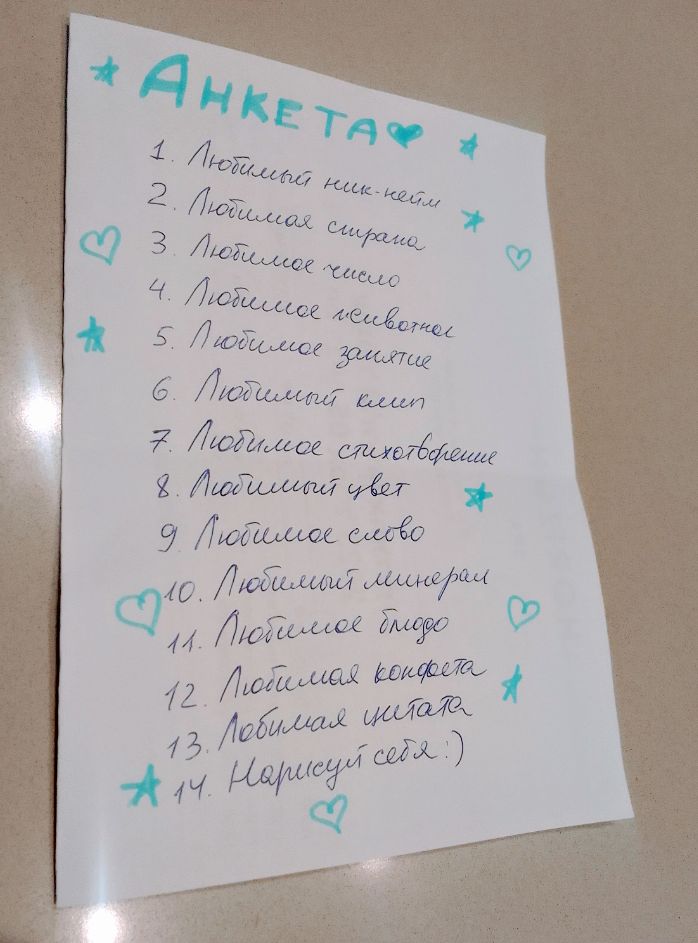 АНКЕТА
1. Любимый ник-нейм
2. Любимая страна
3. Любимое число
4. Любимое животное
5. Любимое занятие
6. Любимый клип
7. Любимое стихотворение
8. Любимый цвет
9. Любимое слово
10. Любимый минерал
11. Любимое блюдо
12. Любимая конфета
13. Лобимая цитата
14. Нарисуй себя :)